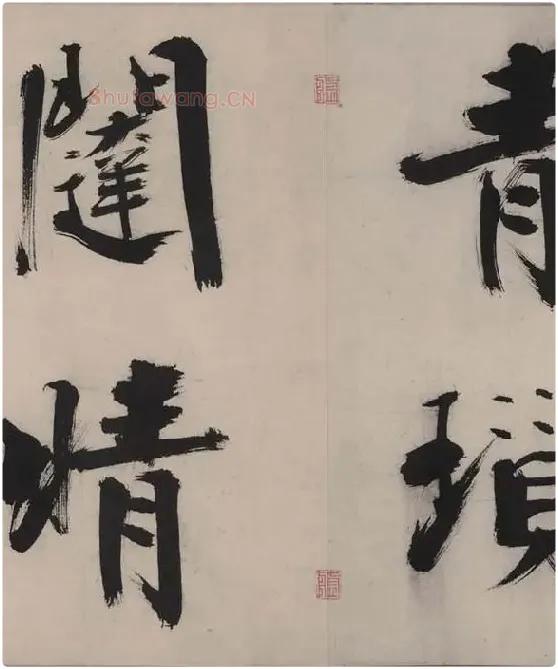 青瑣
闥晴
Shufawang.CN